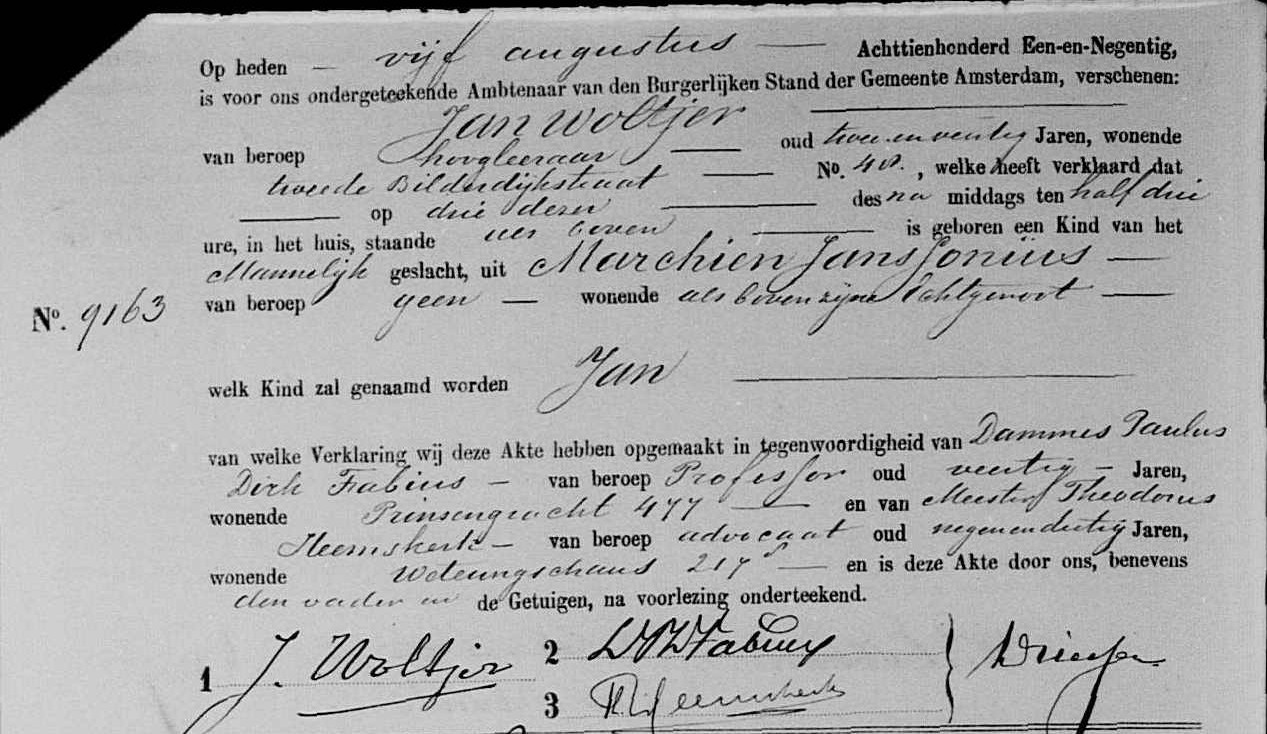 Op heden — vijf augustus — Achttienhonderd Een-en-Negentig,
is voor ons ondergeteekende Ambtenaar van den Burgerlijken Stand der Gemeente Amsterdam, verschenen:
Jan Woltjer
van beroep hoogleeraar — oud twee en veertig Jaren, wonende
tweede Bilderdijkstraat — No. 40., welke heeft verklaard dat
— op drie dezer — des na middags ten half drie
ure, in het huis, staande als boven — is geboren een Kind van het
Mannelijk geslacht, uit Marchien Janssonius —
No. 9163 van beroep geen — wonende als boven zijne Echtgenoot —
welk Kind zal genaamd worden Jan —
van welke Verklaring wij deze Akte hebben opgemaakt in tegenwoordigheid van Dammes Paulus
Dirk Fabius — van beroep Professor oud veertig — Jaren,
wonende Prinsengracht 477 — en van Meester Theodorus
Heemskerk — van beroep advocaat oud negenendertig Jaren,
wonende Weteringschans 217 — en is deze Akte door ons, benevens
den vader en de Getuigen, na voorlezing onderteekend.
1 J. Woltjer 2 DPDFabius
3 Th Heemskerk